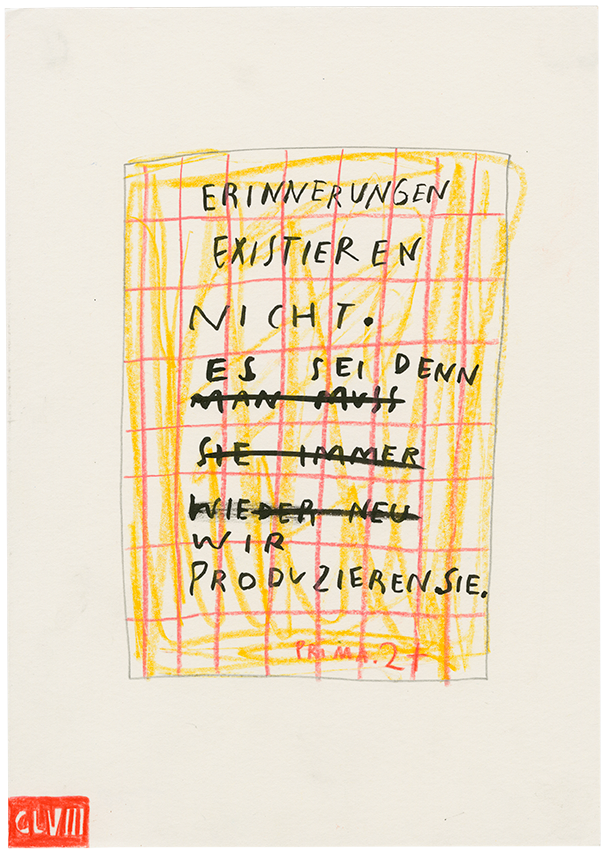 ERINNERUNGEN
EXISTIEREN
NICHT.
ES SEI DENN
MAN MUSS
SIE IMMER
WIEDER NEU
WIR
PRODUZIEREN SIE.
PRIMA. 21
CLVIII